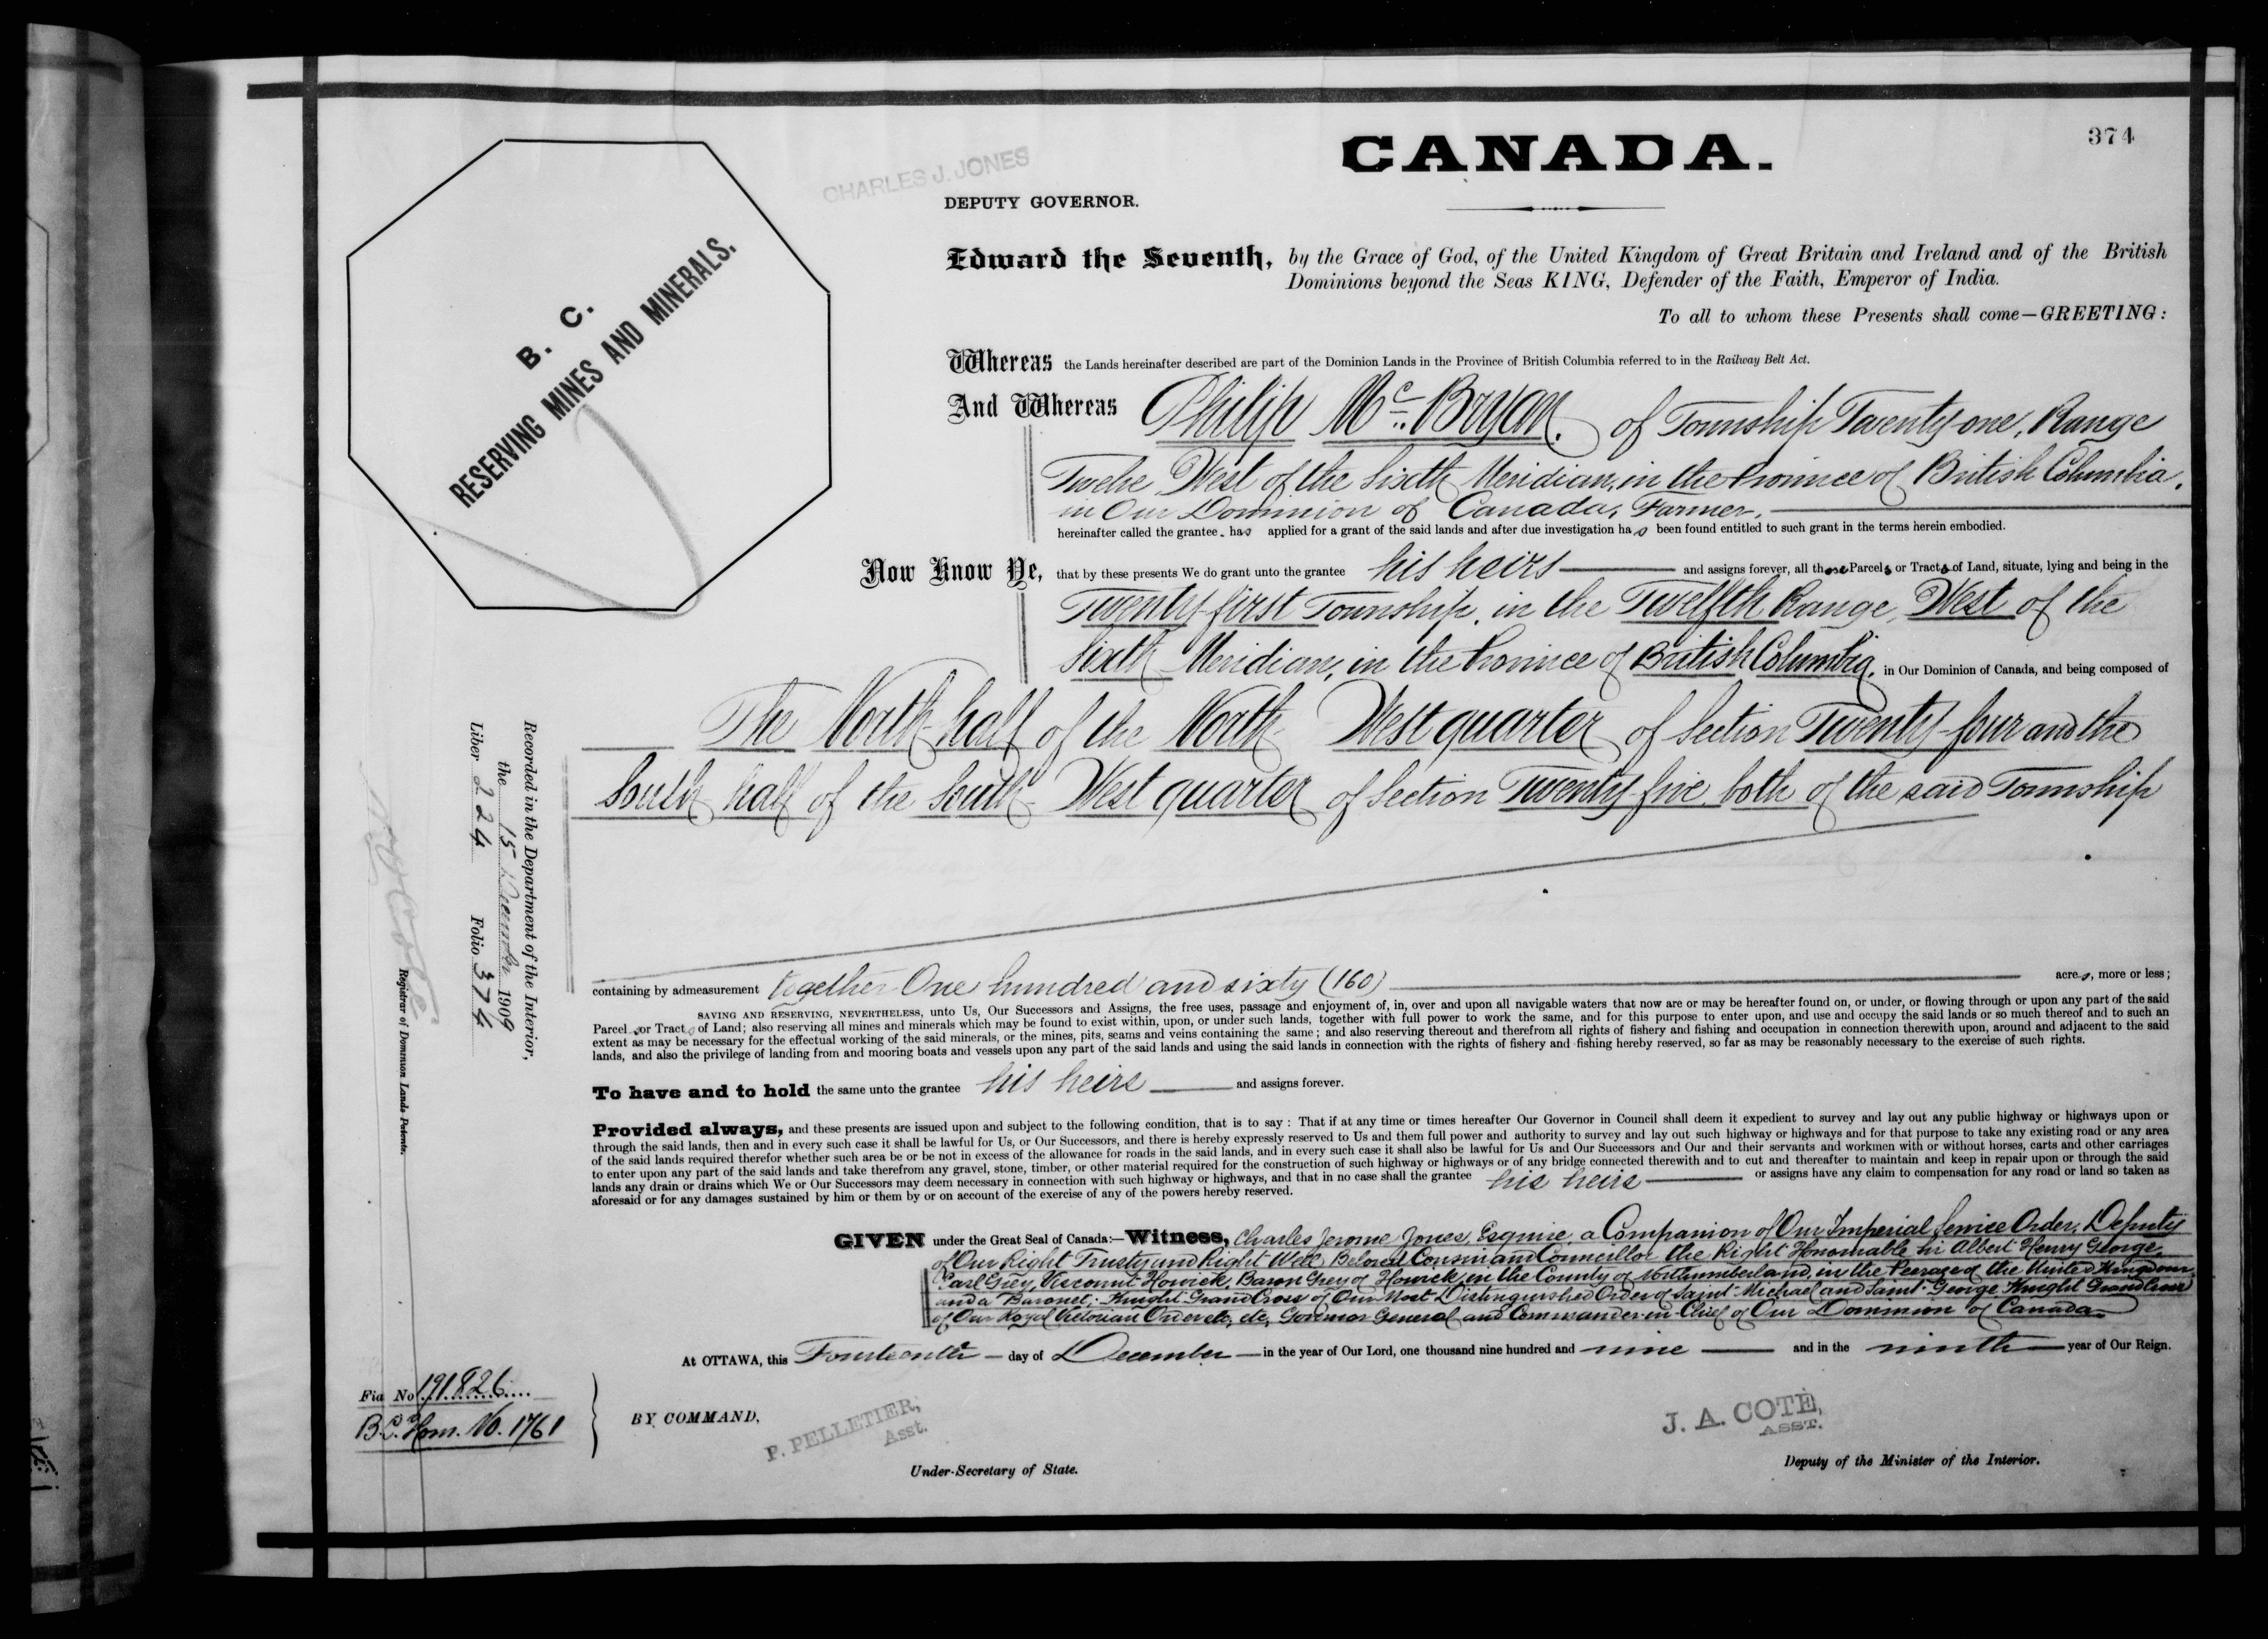 374
CANADA.
CHARLES J. JONES
DEPUTY GOVERNOR.
B. C.
RESERVING MINES AND MINERALS.
Edward the Seventh, by the Grace of God, of the United Kingdom of Great Britain and Ireland and of the British
Dominions beyond the Seas KING, Defender of the Faith, Emperor of India.
To all to whom these Presents shall come—GREETING:
Whereas the Lands hereinafter described are part of the Dominion Lands in the Province of British Columbia referred to in the Railway Belt Act.
And Whereas Philip Mc. Bryan, of Township Twenty-one, Range
Twelve, West of the Sixth Meridian, in the Province of British Columbia,
in Our Dominion of Canada, Farmer,
hereinafter called the grantee, has applied for a grant of the said lands and after due investigation has been found entitled to such grant in the terms herein embodied.
Now Know Ye, that by these presents We do grant unto the grantee his heirs and assigns forever, all those Parcels or Tracts of Land, situate, lying and being in the
Twenty-first Township, in the Twelfth Range, West of the
Sixth Meridian, in the Province of British Columbia, in Our Dominion of Canada, and being composed of
The North-half of the North-West quarter of Section Twenty-four and the
South half of the South-West quarter of Section Twenty-five both of the said Township
containing by admeasurement together One hundred and sixty (160) acres, more or less;
SAVING AND RESERVING, NEVERTHELESS, unto Us, Our Successors and Assigns, the free uses, passage and enjoyment of, in, over and upon all navigable waters that now are or may be hereafter found on, or under, or flowing through or upon any part of the said
Parcel or Tract of Land; also reserving all mines and minerals which may be found to exist within, upon, or under such lands, together with full power to work the same, and for this purpose to enter upon, and use and occupy the said lands or so much thereof and to such an
extent as may be necessary for the effectual working of the said minerals, or the mines, pits, seams and veins containing the same; and also reserving thereout and therefrom all rights of fishery and fishing and occupation in connection therewith upon, around and adjacent to the said
lands, and also the privilege of landing from and mooring boats and vessels upon any part of the said lands and using the said lands in connection with the rights of fishery and fishing hereby reserved, so far as may be reasonably necessary to the exercise of such rights.
To have and to hold the same unto the grantee his heirs and assigns forever.
Provided always, and these presents are issued upon and subject to the following condition, that is to say: That if at any time or times hereafter Our Governor in Council shall deem it expedient to survey and lay out any public highway or highways upon or
through the said lands, then and in every such case it shall be lawful for Us, or Our Successors, and there is hereby expressly reserved to Us and them full power and authority to survey and lay out such highway or highways and for that purpose to take any existing road or any area
of the said lands required therefor whether such area be or be not in excess of the allowance for roads in the said lands, and in every such case it shall also be lawful for Us and Our Successors and Our and their servants and workmen with or without horses, carts and other carriages
to enter upon any part of the said lands and take therefrom any gravel, stone, timber, or other material required for the construction of such highway or highways or of any bridge connected therewith and to cut and thereafter to maintain and keep in repair upon or through the said
lands any drain or drains which We or Our Successors may deem necessary in connection with such highway or highways, and that in no case shall the grantee his heirs or assigns have any claim to compensation for any road or land so taken as
aforesaid or for any damages sustained by him or them by or on account of the exercise of any of the powers hereby reserved.
GIVEN under the Great Seal of Canada:—Witness, Charles Jerome Jones, Esquire, a Companion of Our Imperial Service Order, Deputy
of Our Right Trusty and Right Well Beloved Cousin and Councillor the Right Honourable Sir Albert Henry George,
Earl Grey, Viscount Howick, Baron Grey of Howick, in the County of Northumberland, in the Peerage of the United Kingdom,
and a Baronet; Knight Grand Cross of Our Most Distinguished Order of Saint Michael and Saint George Knight Grand Cross
of Our Royal Victorian Order etc, etc, Governor General and Commander-in-Chief of Our Dominion of Canada
At OTTAWA, this Fourteenth day of December in the year of Our Lord, one thousand nine hundred and nine and in the ninth year of Our Reign.
Fia No 191826
B.C. Hom. No. 1761
BY COMMAND,
P. PELLETIER,
Asst.
Under-Secretary of State.
J. A. COTÉ,
ASST.
Deputy of the Minister of the Interior.
Recorded in the Department of the Interior,
the 15 December 1909
Liber 224 Folio 374
Registrar of Dominion Lands Patents.